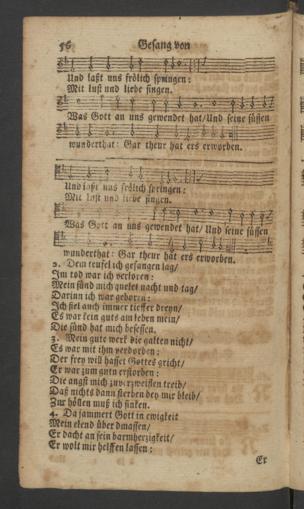 56 Gesang von
Und laßt uns frölich springen:
Mit lust und liebe singen.
Was Gott an uns gewendet hat/Und seine süssen
wunderthat: Gar theur hat ers erworben.
Und laßt uns frölich springen:
Mit lust und liebe singen.
Was Gott an uns gewendet hat/Und seine süssen
wunderthat: Gar theur hat ers erworben.
2. Dem teufel ich gefangen lag/
Im tod war ich verloren:
Mein sünd mich quelet nacht und tag/
Darinn ich war geboren:
Ich fiel auch immer tieffer dreyn/
Es war kein guts am leben mein/
Die sünd hat mich besessen.
3. Mein gute werk die galten nicht/
Es war mit ihn verdorben:
Der frey will hasset Gottes gricht/
Er war zum gutn erstorben:
Die angst mich zu verzweiflen treib/
Daß nichts dann sterben bey mir bleib/
Zur höllen muß ich sinken.
4. Da jammert Gott in ewigkeit
Mein elend über dmassen/
Er dacht an sein barmherzigkeit/
Er wolt mir helffen lassen:
Er